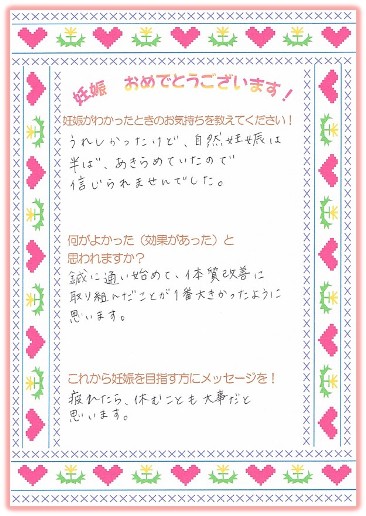 妊娠 おめでとうございます!
妊娠がわかったときのお気持ちを教えてください!
うれしかったけど、自然妊娠は
半ば、あきらめていたので
信じられませんでした。
何がよかった(効果があった)と
思われますか?
鍼に通い始めて、体質改善に
取り組んだことが1番大きかったように
思います。
これから妊娠を目指す方にメッセージを!
疲れたら、休むことも大事だと
思います。